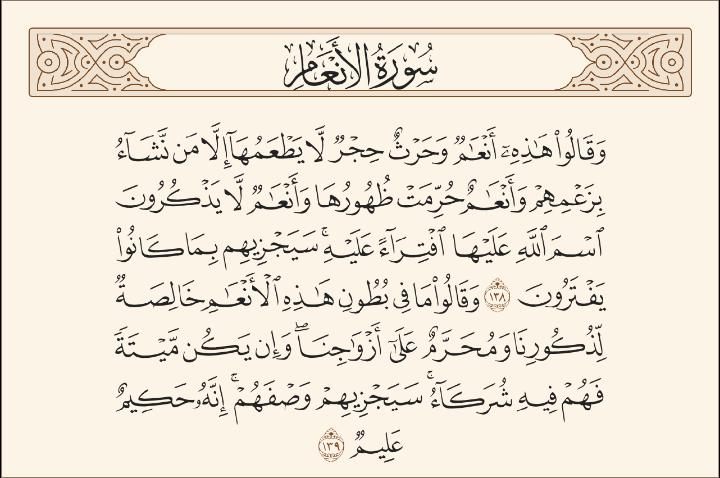 سُورَةُ الأَنْعَامِ
وَقَالُوا۟ هَـٰذِهِۦٓ أَنْعَـٰمٌ وَحَرْثٌ حِجْرٌ لَّا يَطْعَمُهَآ إِلَّا مَن نَّشَآءُ
بِزَعْمِهِمْ وَأَنْعَـٰمٌ حُرِّمَتْ ظُهُورُهَا وَأَنْعَـٰمٌ لَّا يَذْكُرُونَ
ٱسْمَ ٱللَّهِ عَلَيْهَا ٱفْتِرَآءً عَلَيْهِ ۚ سَيَجْزِيهِم بِمَا كَانُوا۟
يَفْتَرُونَ ١٣٨ وَقَالُوا۟ مَا فِى بُطُونِ هَـٰذِهِ ٱلْأَنْعَـٰمِ خَالِصَةٌ
لِّذُكُورِنَا وَمُحَرَّمٌ عَلَىٰٓ أَزْوَٰجِنَا ۖ وَإِن يَكُن مَّيْتَةً
فَهُمْ فِيهِ شُرَكَآءُ ۚ سَيَجْزِيهِمْ وَصْفَهُمْ ۚ إِنَّهُۥ حَكِيمٌ
عَلِيمٌ ١٣٩